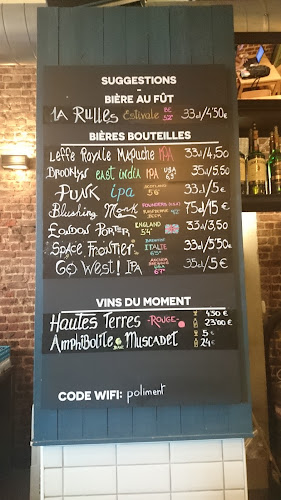 SUGGESTIONS
-
BIÈRE AU FÛT
LA Rulles Estivale BE 5,2° 33cl/4,50€
BIÈRES BOUTEILLES
Leffe Royale Mapuche IPA 33cl/4,50
Brooklyn east india IPA USA 33cl/5,5€
PUNK ipa 5,6° 33cl/5€
Blushing Monk 75cl/15€
London Porter ENGLAND 5,4° 33cl/3,50
Space Frontier ITALIE 33cl/5,50€
GO West! IPA 35cl/5€
VINS DU MOMENT
Hautes Terres -ROUGE- 4,30€
23,00€
Amphibolite Muscadet 5€
24€
CODE WIFI: poliment